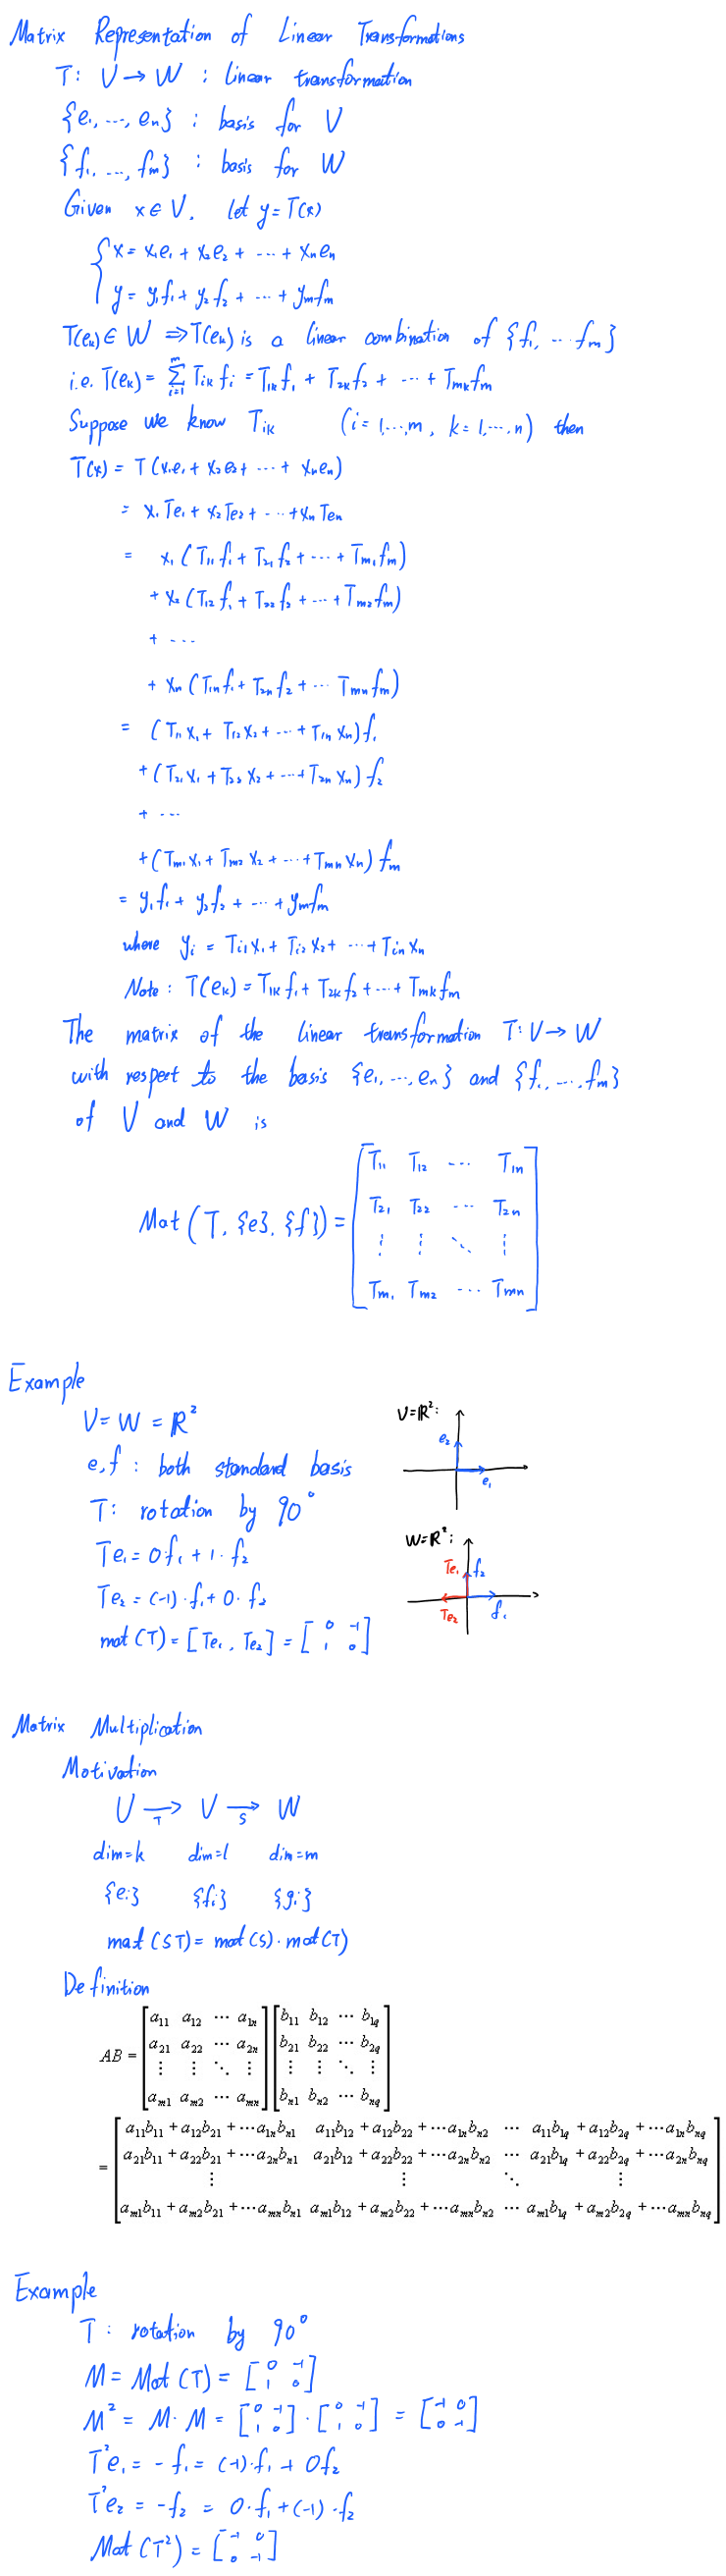 Matrix Representation of Linear Transformations
T: V → W : linear transformation
{e₁, ..., eₙ} : basis for V
{f₁, ..., fₘ} : basis for W
Given x ∈ V, let y = T(x)
x = x₁e₁ + x₂e₂ + ⋯ + xₙeₙ
y = y₁f₁ + y₂f₂ + ⋯ + yₘfₘ
T(eₖ) ∈ W ⇒ T(eₖ) is a linear combination of {f₁, ⋯ fₘ}
i.e. T(eₖ) = Σᵢ₌₁ᵐ Tᵢₖ fᵢ = T₁ₖ f₁ + T₂ₖ f₂ + ⋯ + Tₘₖ fₘ
Suppose we know Tᵢₖ (i = 1, ..., m, k = 1, ..., n) then
T(x) = T(x₁e₁ + x₂e₂ + ⋯ + xₙeₙ)
= x₁Te₁ + x₂Te₂ + ⋯ + xₙTeₙ
= x₁(T₁₁f₁ + T₂₁f₂ + ⋯ + Tₘ₁fₘ)
+ x₂(T₁₂f₁ + T₂₂f₂ + ⋯ + Tₘ₂fₘ)
+ ⋯
+ xₙ(T₁ₙf₁ + T₂ₙf₂ + ⋯ Tₘₙfₘ)
= (T₁₁x₁ + T₁₂x₂ + ⋯ + T₁ₙxₙ)f₁
+ (T₂₁x₁ + T₂₂x₂ + ⋯ + T₂ₙxₙ)f₂
+ ⋯
+ (Tₘ₁x₁ + Tₘ₂x₂ + ⋯ + Tₘₙxₙ)fₘ
= y₁f₁ + y₂f₂ + ⋯ + yₘfₘ
where yᵢ = Tᵢ₁x₁ + Tᵢ₂x₂ + ⋯ + Tᵢₙxₙ
Note : T(eₖ) = T₁ₖf₁ + T₂ₖf₂ + ⋯ + Tₘₖfₘ
The matrix of the linear transformation T: V → W
with respect to the basis {e₁, ..., eₙ} and {f₁, ..., fₘ}
of V and W is
Mat(T, {e}, {f}) = [T₁₁ T₁₂ ⋯ T₁ₙ
T₂₁ T₂₂ ⋯ T₂ₙ
⋮ ⋮ ⋱ ⋮
Tₘ₁ Tₘ₂ ⋯ Tₘₙ]
Example
V = W = ℝ²
e, f : both standard basis
T: rotation by 90°
Te₁ = 0·f₁ + 1·f₂
Te₂ = (-1)·f₁ + 0·f₂
mat(T) = [Te₁, Te₂] = [0 -1
1 0]
V=ℝ²:
e₂
e₁
W=ℝ²:
Te₁ f₂
Te₂ f₁
Matrix Multiplication
Motivation
U →T V →S W
dim=k dim=l dim=m
{eᵢ} {fᵢ} {gᵢ}
mat(ST) = mat(S)·mat(T)
Definition
AB = [a₁₁ a₁₂ ⋯ a₁ₙ] [b₁₁ b₁₂ ⋯ b₁q]
[a₂₁ a₂₂ ⋯ a₂ₙ] [b₂₁ b₂₂ ⋯ b₂q]
[⋮ ⋮ ⋱ ⋮] [⋮ ⋮ ⋱ ⋮]
[aₘ₁ aₘ₂ ⋯ aₘₙ] [bₙ₁ bₙ₂ ⋯ bₙq]
= [a₁₁b₁₁ + a₁₂b₂₁ + ⋯a₁ₙbₙ₁ a₁₁b₁₂ + a₁₂b₂₂ + ⋯a₁ₙbₙ₂ ⋯ a₁₁b₁q + a₁₂b₂q + ⋯a₁ₙbₙq]
[a₂₁b₁₁ + a₂₂b₂₁ + ⋯a₂ₙbₙ₁ a₂₁b₁₂ + a₂₂b₂₂ + ⋯a₂ₙbₙ₂ ⋯ a₂₁b₁q + a₂₂b₂q + ⋯a₂ₙbₙq]
[⋮ ⋮ ⋱ ⋮]
[aₘ₁b₁₁ + aₘ₂b₂₁ + ⋯aₘₙbₙ₁ aₘ₁b₁₂ + aₘ₂b₂₂ + ⋯aₘₙbₙ₂ ⋯ aₘ₁b₁q + aₘ₂b₂q + ⋯aₘₙbₙq]
Example
T: rotation by 90°
M = Mat(T) = [0 -1
1 0]
M² = M·M = [0 -1; 1 0]·[0 -1; 1 0] = [-1 0; 0 -1]
T²e₁ = -f₁ = (-1)·f₁ + 0f₂
T²e₂ = -f₂ = 0·f₁ + (-1)·f₂
Mat(T²) = [-1 0
0 -1]